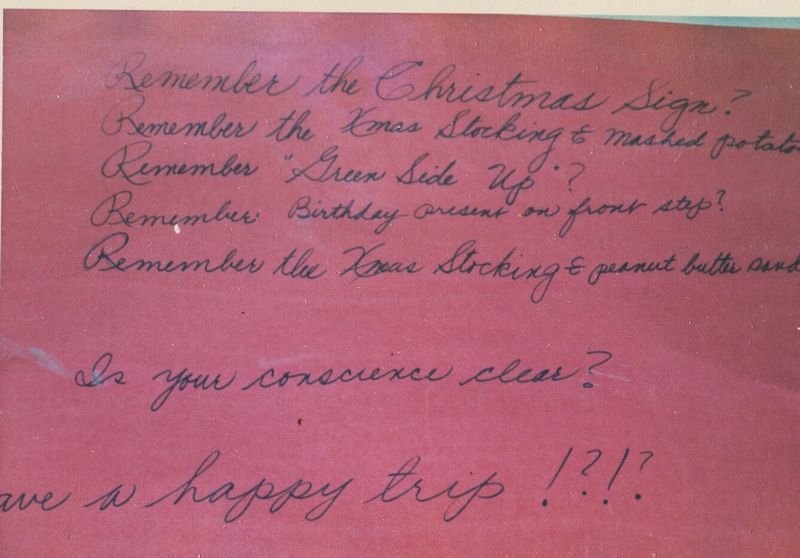 Remember the Christmas Sign?
Remember the Xmas Stocking & mashed potato
Remember "Green Side Up"?
Remember Birthday present on front step?
Remember the Xmas Stocking & peanut butter sand
Is your conscience clear?
ave a happy trip !?!?